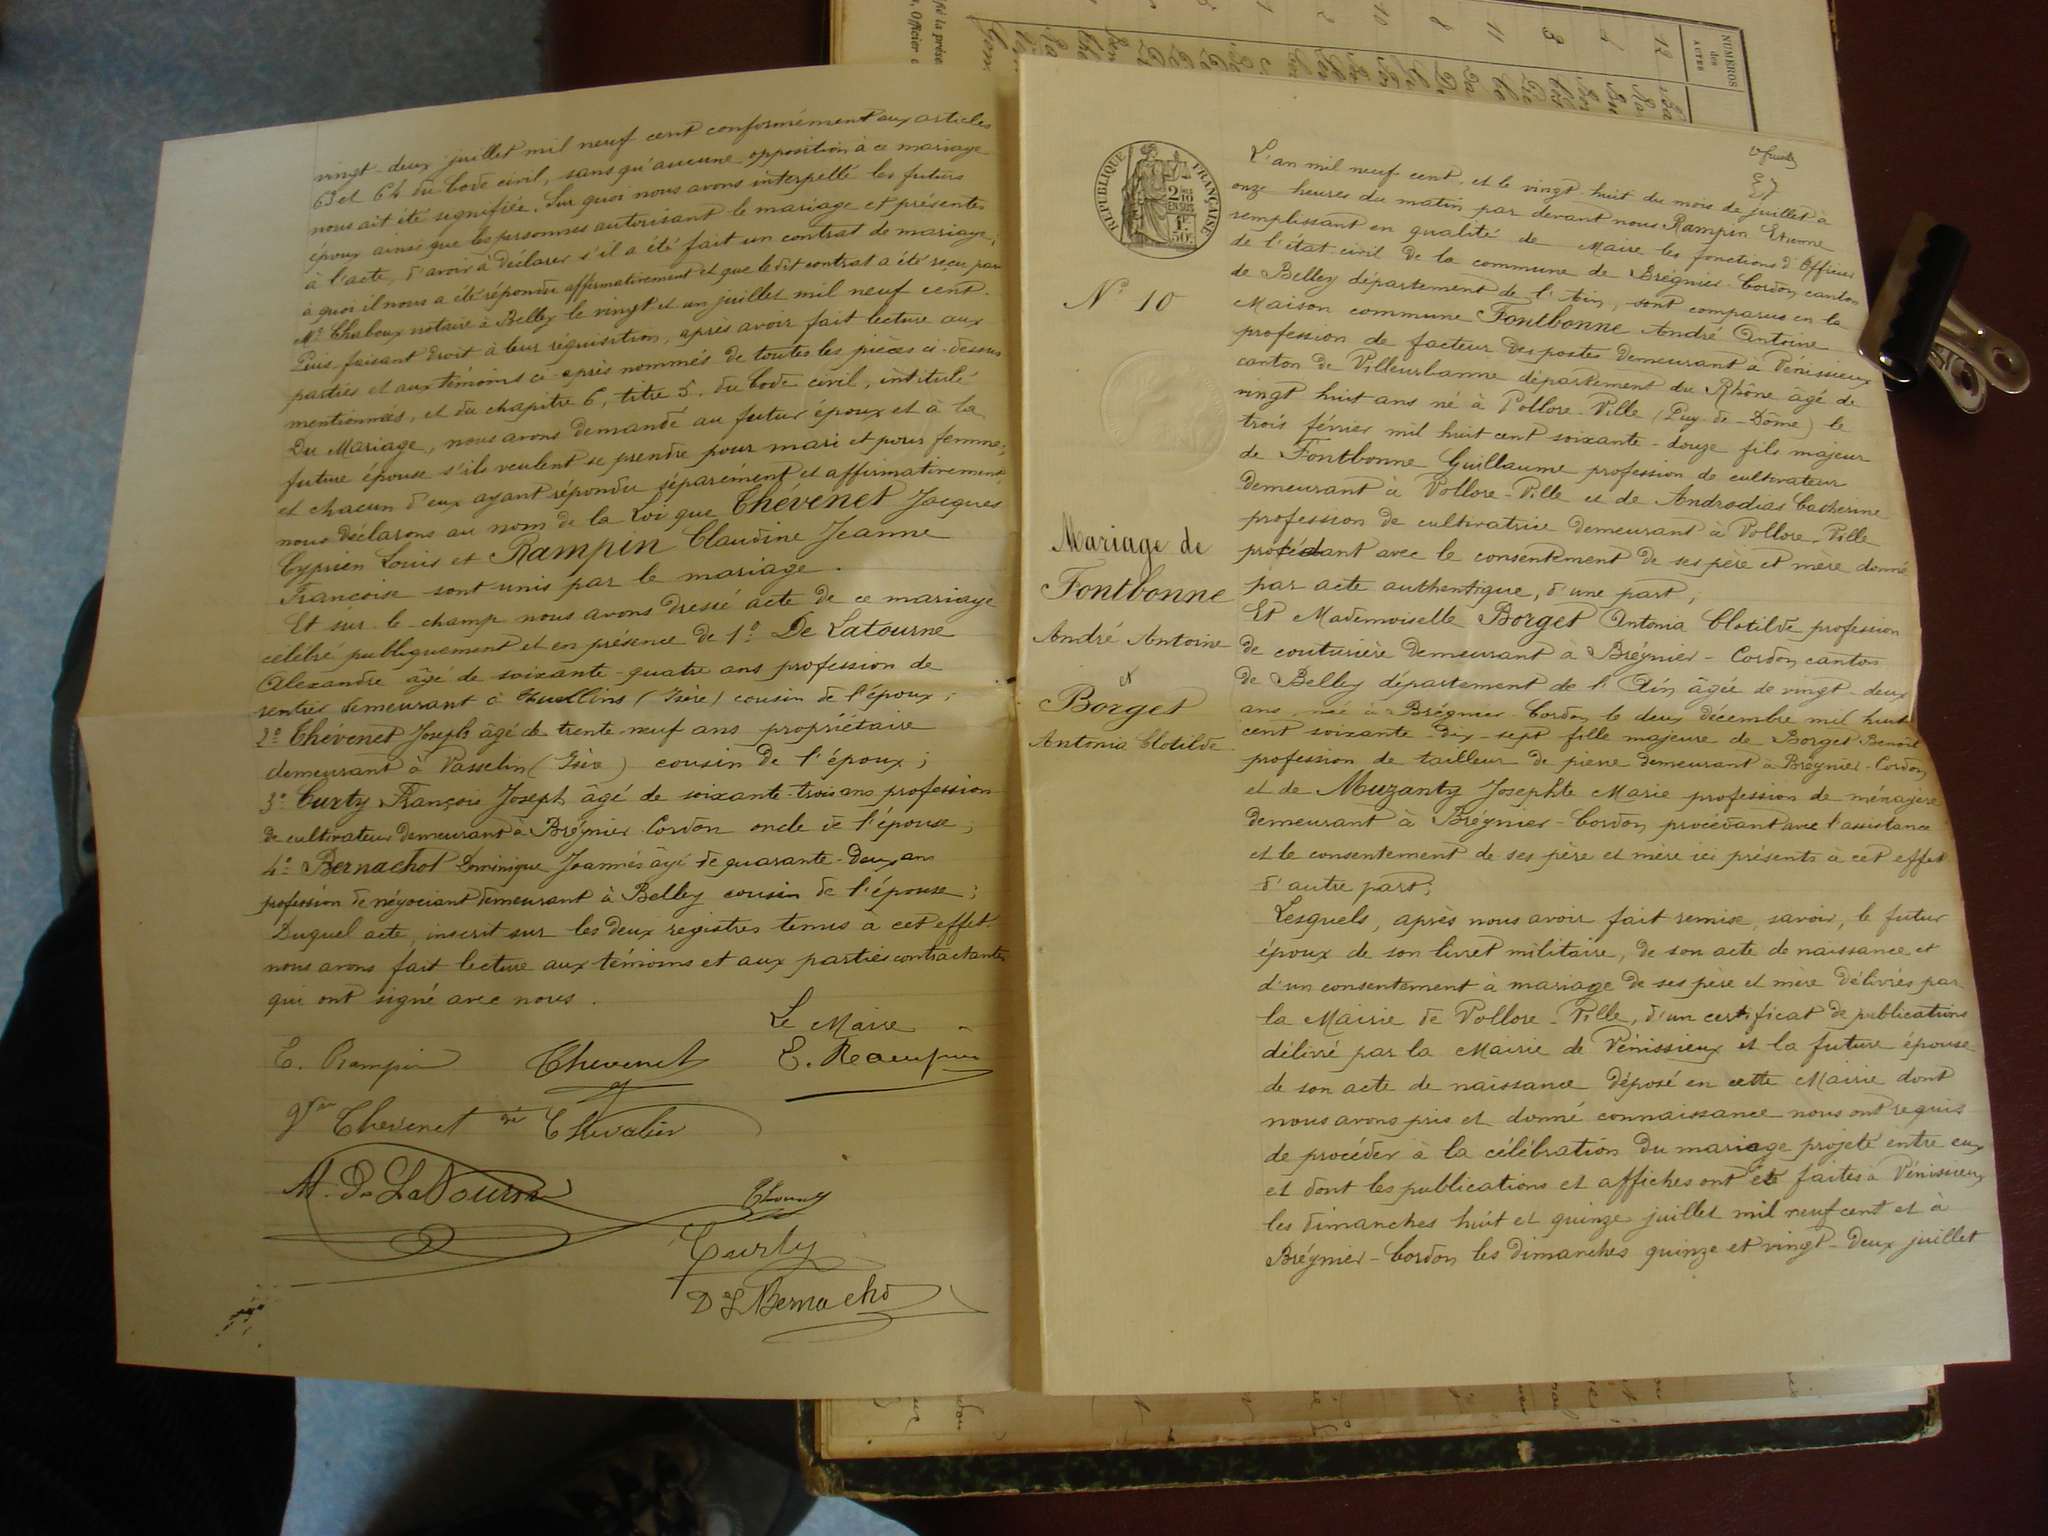 vingt-deux juillet mil neuf cent conformément aux articles
63 et 64 du Code civil, sans qu'aucune opposition à ce mariage
nous ait été signifiée. Sur quoi nous avons interpellé les futurs
époux ainsi que les personnes autorisant le mariage et présentes
à l'acte, d'avoir à déclarer s'il a été fait un contrat de mariage;
à quoi il nous a été répondu affirmativement et que ledit contrat a été reçu par
Me Chaboux notaire à Belley le vingt et un juillet mil neuf cent.
Puis, faisant droit à leur réquisition, après avoir fait lecture aux
parties et aux témoins ci-après nommés de toutes les pièces ci-dessus
mentionnées, et du chapitre 6, titre 5, du Code civil, intitulé
Du Mariage, nous avons demandé au futur époux et à la
future épouse s'ils veulent se prendre pour mari et pour femme;
et chacun d'eux ayant répondu séparément et affirmativement,
nous déclarons au nom de la Loi que Thévenet Jacques
Cyprien Louis et Rampin Claudine Jeanne
Françoise sont unis par le mariage.
Et sur-le-champ nous avons dressé acte de ce mariage
célébré publiquement et en présence de 1o De Latourne
Alexandre âgé de soixante-quatre ans profession de
rentier demeurant à Thuellins (Isère) cousin de l'époux;
2o Thévenet Joseph âgé de trente-neuf ans propriétaire
demeurant à Vasselin (Isère) cousin de l'époux;
3o Curty François Joseph âgé de soixante-trois ans profession
de cultivateur demeurant à Brégnier-Cordon oncle de l'épouse;
4o Bernachot Dominique Joannès âgé de quarante-deux ans
profession de négociant demeurant à Belley cousin de l'épouse;
Duquel acte, inscrit sur les deux registres tenus à cet effet.
nous avons fait lecture aux témoins et aux parties contractantes
qui ont signé avec nous.
Le Maire
C. Rampin Thevenet E. Rampin
Vve Thevenet née Chevalier
A. De Latourne
Curty
D J Bernachot
NUMEROS
des
ACTES
12
RÉPUBLIQUE FRANÇAISE
2 DES 10
EN SUS
1F
50c
No 10
Mariage de
Fontbonne
André Antoine
et
Borget
Antonia Clotilde
L'an mil neuf cent, et le vingt huit du mois de juillet à
onze heures du matin par devant nous Rampin Etienne
remplissant en qualité de Maire les fonctions d'Officier
de l'état-civil de la commune de Brégnier-Cordon, canton
de Belley département de l'Ain, sont comparus en la
Maison commune Fontbonne André Antoine
profession de facteur des postes demeurant à Vénissieux
canton de Villeurbanne département du Rhône âgé de
vingt huit ans né à Vollore-Ville (Puy-de-Dôme) le
trois février mil huit cent soixante-douze fils majeur
de Fontbonne Guillaume profession de cultivateur
demeurant à Vollore-Ville et de Androdias Catherine
profession de cultivatrice demeurant à Vollore-Ville
procédant avec le consentement de ses père et mère donné
par acte authentique, d'une part;
Et Mademoiselle Borget Antonia Clotilde profession
de couturière demeurant à Brégnier-Cordon canton
de Belley département de l'Ain âgée de vingt-deux
ans, née à Brégnier-Cordon le deux décembre mil huit
cent soixante-dix-sept fille majeure de Borget Benoît
profession de tailleur de pierre demeurant à Brégnier-Cordon
et de Muzanty Josephte Marie profession de ménagère
demeurant à Brégnier-Cordon, procédant avec l'assistance
et le consentement de ses père et mère ici présents à cet effet
d'autre part;
Lesquels, après nous avoir fait remise, savoir, le futur
époux de son livret militaire, de son acte de naissance et
d'un consentement à mariage de ses père et mère délivrés par
la Mairie de Vollore-Ville, d'un certificat de publications
délivré par la Mairie de Vénissieux et la future épouse
de son acte de naissance déposé en cette Mairie dont
nous avons pris et donné connaissance nous ont requis
de procéder à la célébration du mariage projeté entre eux
et dont les publications et affiches ont été faites à Vénissieux
les dimanches huit et quinze juillet mil neuf cent et à
Brégnier-Cordon les dimanches quinze et vingt-deux juillet